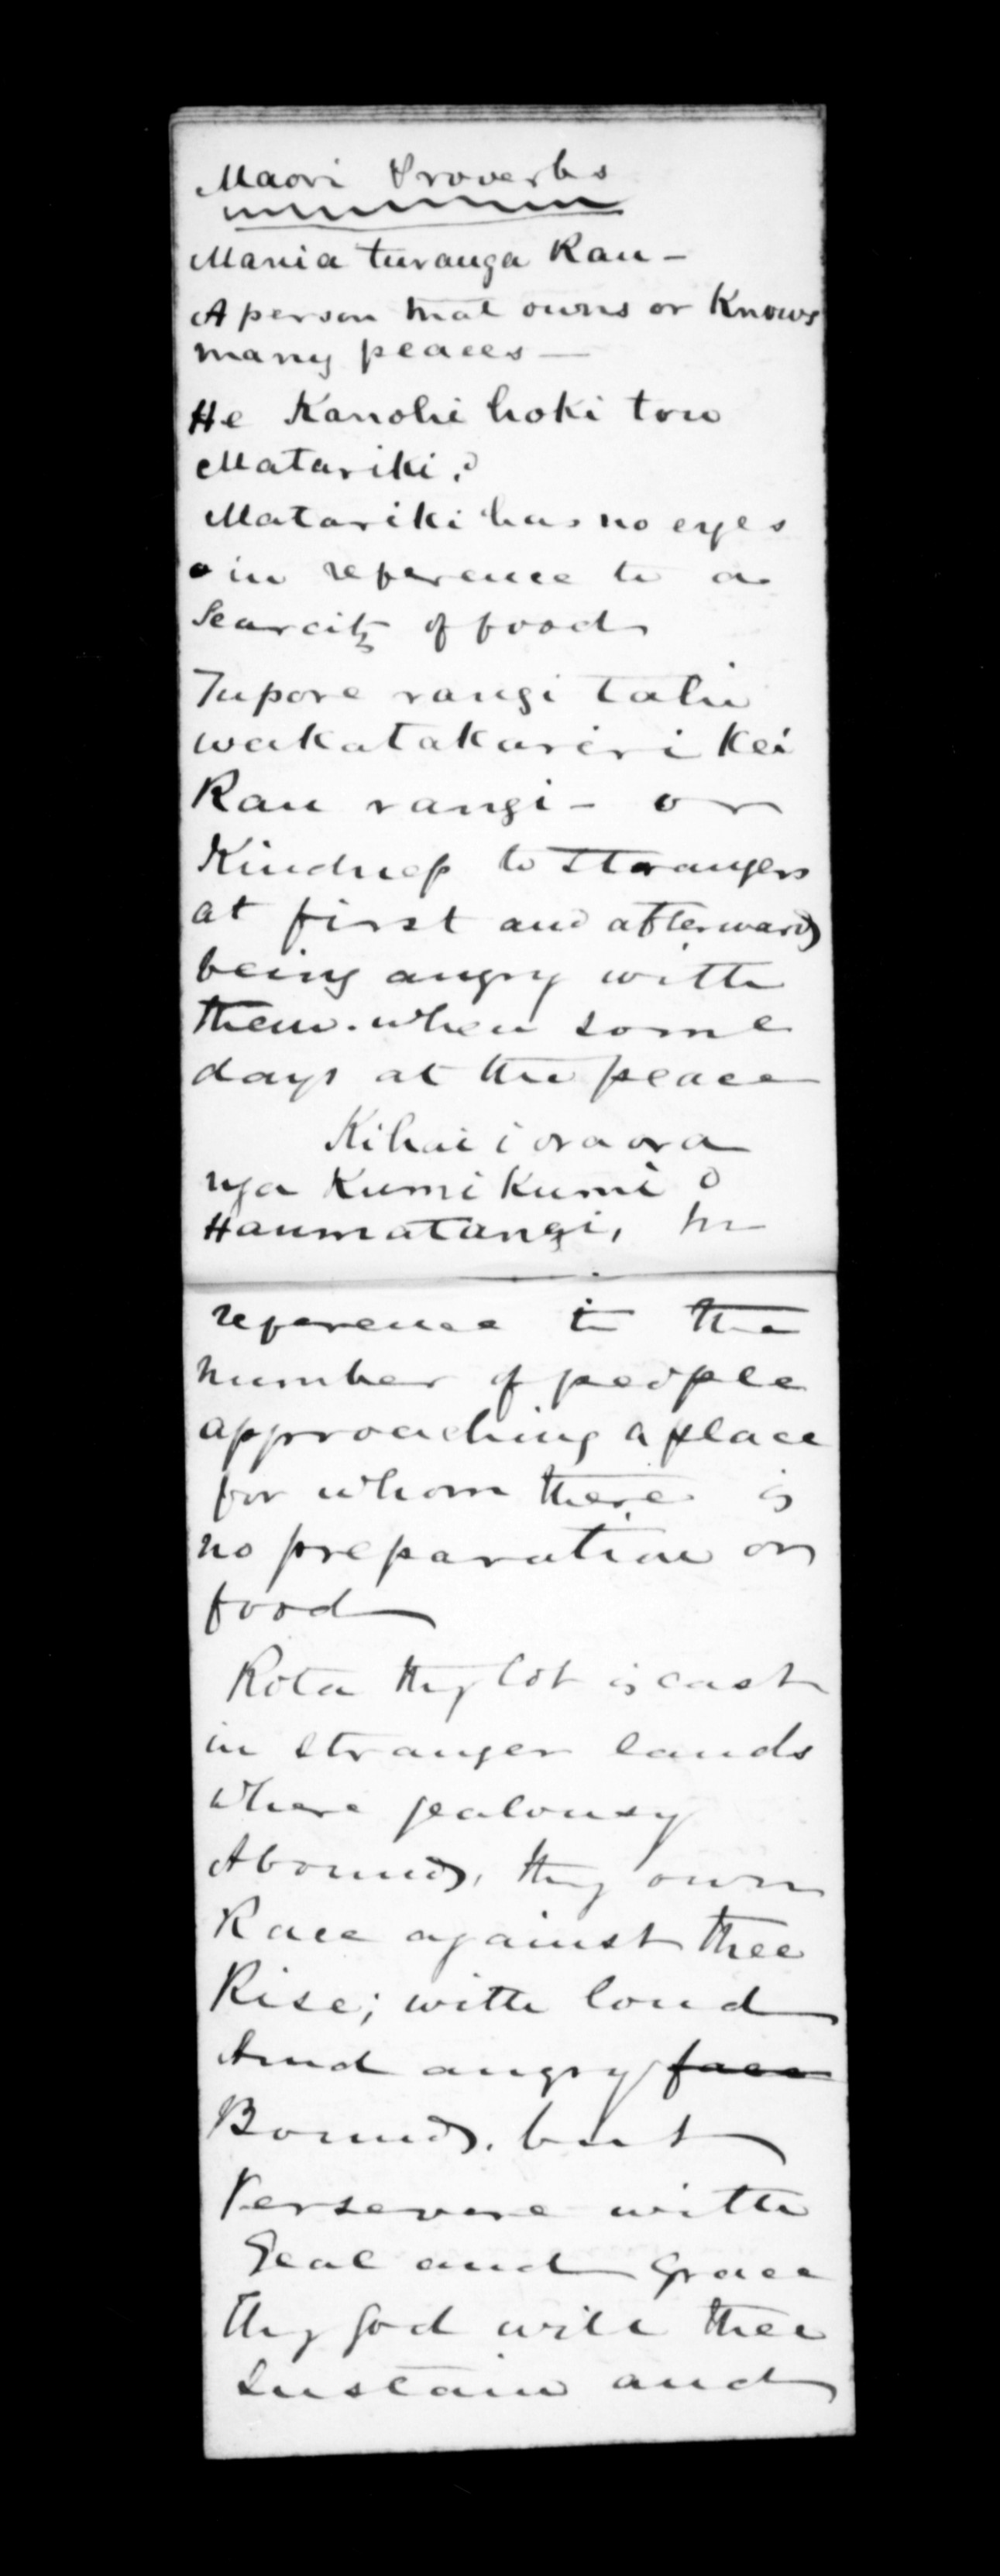 Maori Proverbs
Mania turanga Rau -
A person that owns or Knows
many places -
He Kanohi hoki tou
Matariki?
Matariki has no eyes
in reference to a
Scarcity of food
Tupore rangi tahi
wakatakariri kei
Rau rangi - or
Kindness to strangers
at first and afterwards
being angry with
them. when some
days at the place
Kihai i oraora
nga Kumikumi o
Haumatangi, In
reference to the
number of people
approaching a place
for whom there is
no preparation or
food
Rota thy lot is cast
in stranger lands
Where jealousy
Abounds, thy own
Race against thee
Rise; with loud
And angry face
Bounds. but
Persevere with
Zeal and Grace
Thy God will thee
Sustain and